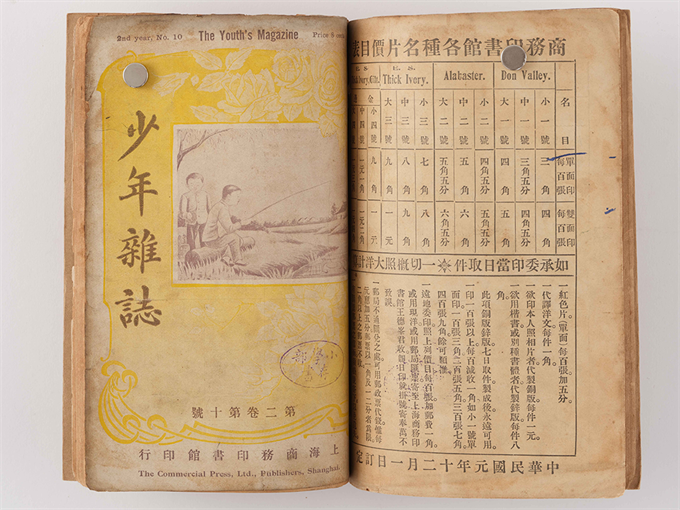 2nd year, No. 10
The Youth's Magazine
Price 8 cen
少年雜誌
第二卷第十號
上海商務印書館印行
The Commercial Press, Ltd., Publishers, Shanghai.
商務印書館各種名片價目表
Thick Ivory.
Alabaster.
Don Valley.
名目
單面印每百張
雙面印每百張
小一號
三角
四角
中一號
三角五分
四角五分
大一號
四角
五角
小二號
四角五分
五角五分
大二號
五角
六角
五角五分
六角五分
小三號
七角
八角
中三號
八角
九角
大三號
九角
一元
如承委印當日取件一切概照大洋計
一紅色片(單面)每百張加五分。
一代譯洋文每件一角。
一欲印本人照相片者代製銅版每件一元。
一欲用楷書或別種書體者代製鋅版每件八角。
此項銅版鋅版七日取件製成後永遠可用。
一印一百張以上每百減收一角如小一號單面印一百張三角二百張五角三百張七角四百張九角餘可類推。
一遠地委印照上列價目每百張加郵費一角
中華民國元年十二月一日訂定